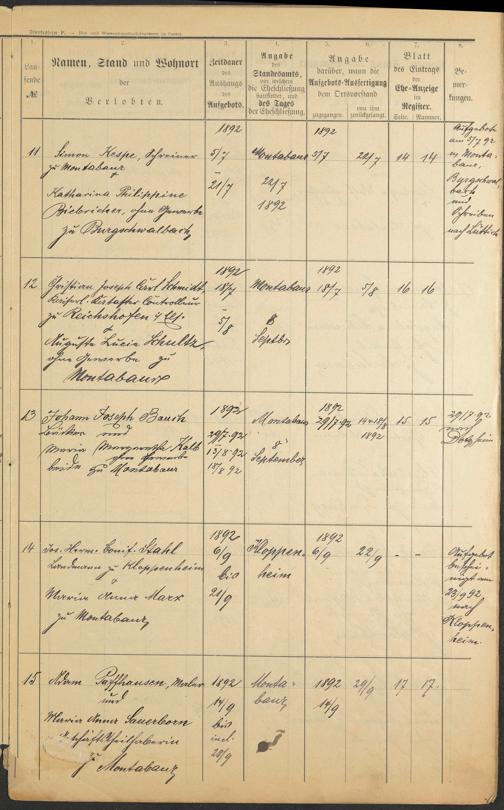 1.
2.
3.
4.
5.
6.
7.
8.
Lau-
fende
№
Namen, Stand und Wohnort
der
Verlobten.
Zeitdauer
des
Aushangs
des
Aufgebots.
Angabe
des
Standesamts,
vor welchem
die Eheschließung
stattfindet, und
des Tages
der Eheschließung.
Angabe
darüber, wann die
Aufgebots-Ausfertigung
dem Ortsvorstand
zugegangen.
von ihm
zurückgelangt.
Blatt
des Eintrags
der
Ehe-Anzeige
im
Register.
Seite.
Nummer.
Be-
mer-
kungen.
11
Simon Kespe, Schreiner
zu Montabaur
Katharina Philippine
Biebricher, ohne Gewerbe
zu Burgschwalbach
1892
5/7
-
21/7
Montabaur
22/7
1892
1892
5/7
22/7
14
14
Aufgebots
am 5/7 92
Monta-
baur,
Burgschwal
bach
und
Schreiben
nach Lüttich
12
Christian Joseph Carl Schmidt,
Kaiserl. Kataster Controlleur
zu Reichshofen
Auguste Lucie Schultz,
ohne Gewerbe zu
Montabaur
1892
18/7
-
5/8
Montabaur
8
Septbr
1892
18/7
5/8
16
16
13
Johann Joseph Bausch
und
Maria Margaretha Kalb
ohne Gewerbe
beide zu Montabaur
1892
29/7 92
13/8 92
18/8 92
Montabaur
8
September
1892
29/7 92
1892
15
15
29/7 92
nach
Dotzheim
14
Jos. Herm. Bonif. Stahl
Landmann zu Kloppenheim
Maria Anna Marx
zu Montabaur
1892
6/9
bis
21/9
Kloppen-
heim
1892
6/9
22/9
-
-
Aufgebot
beschei-
nigt am
23/9 92
nach
Kloppen,
heim.
15
Adam Paffhausen, Maler
und
Maria Anna Sauerborn
Geschäftstheilhaberin
zu Montabaur
1892
14/9
bis
incl.
28/9
Monta-
baur
1892
14/9
29/9
17
17.